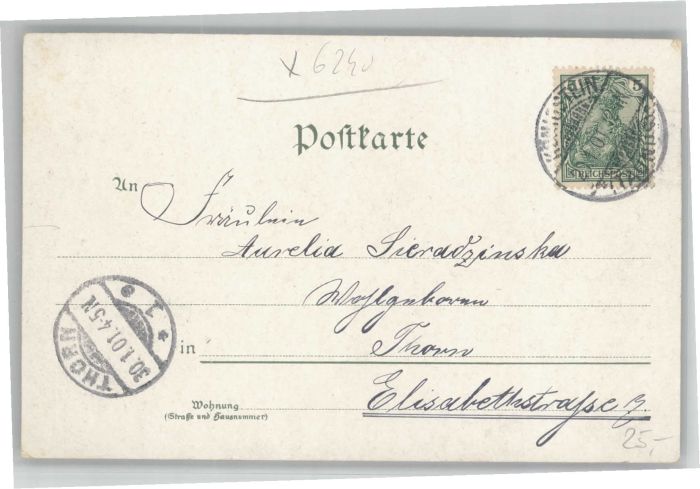 x 6240
Postkarte
5
REICHSPOST
An Fräulein
Aurelia Sieradzinska
Wohlgeboren
in Thorn
Wohnung
(Straße und Hausnummer)
Elisabethstraße 3.
THORN
30.1.01.4-5N
* 1 e
25,-